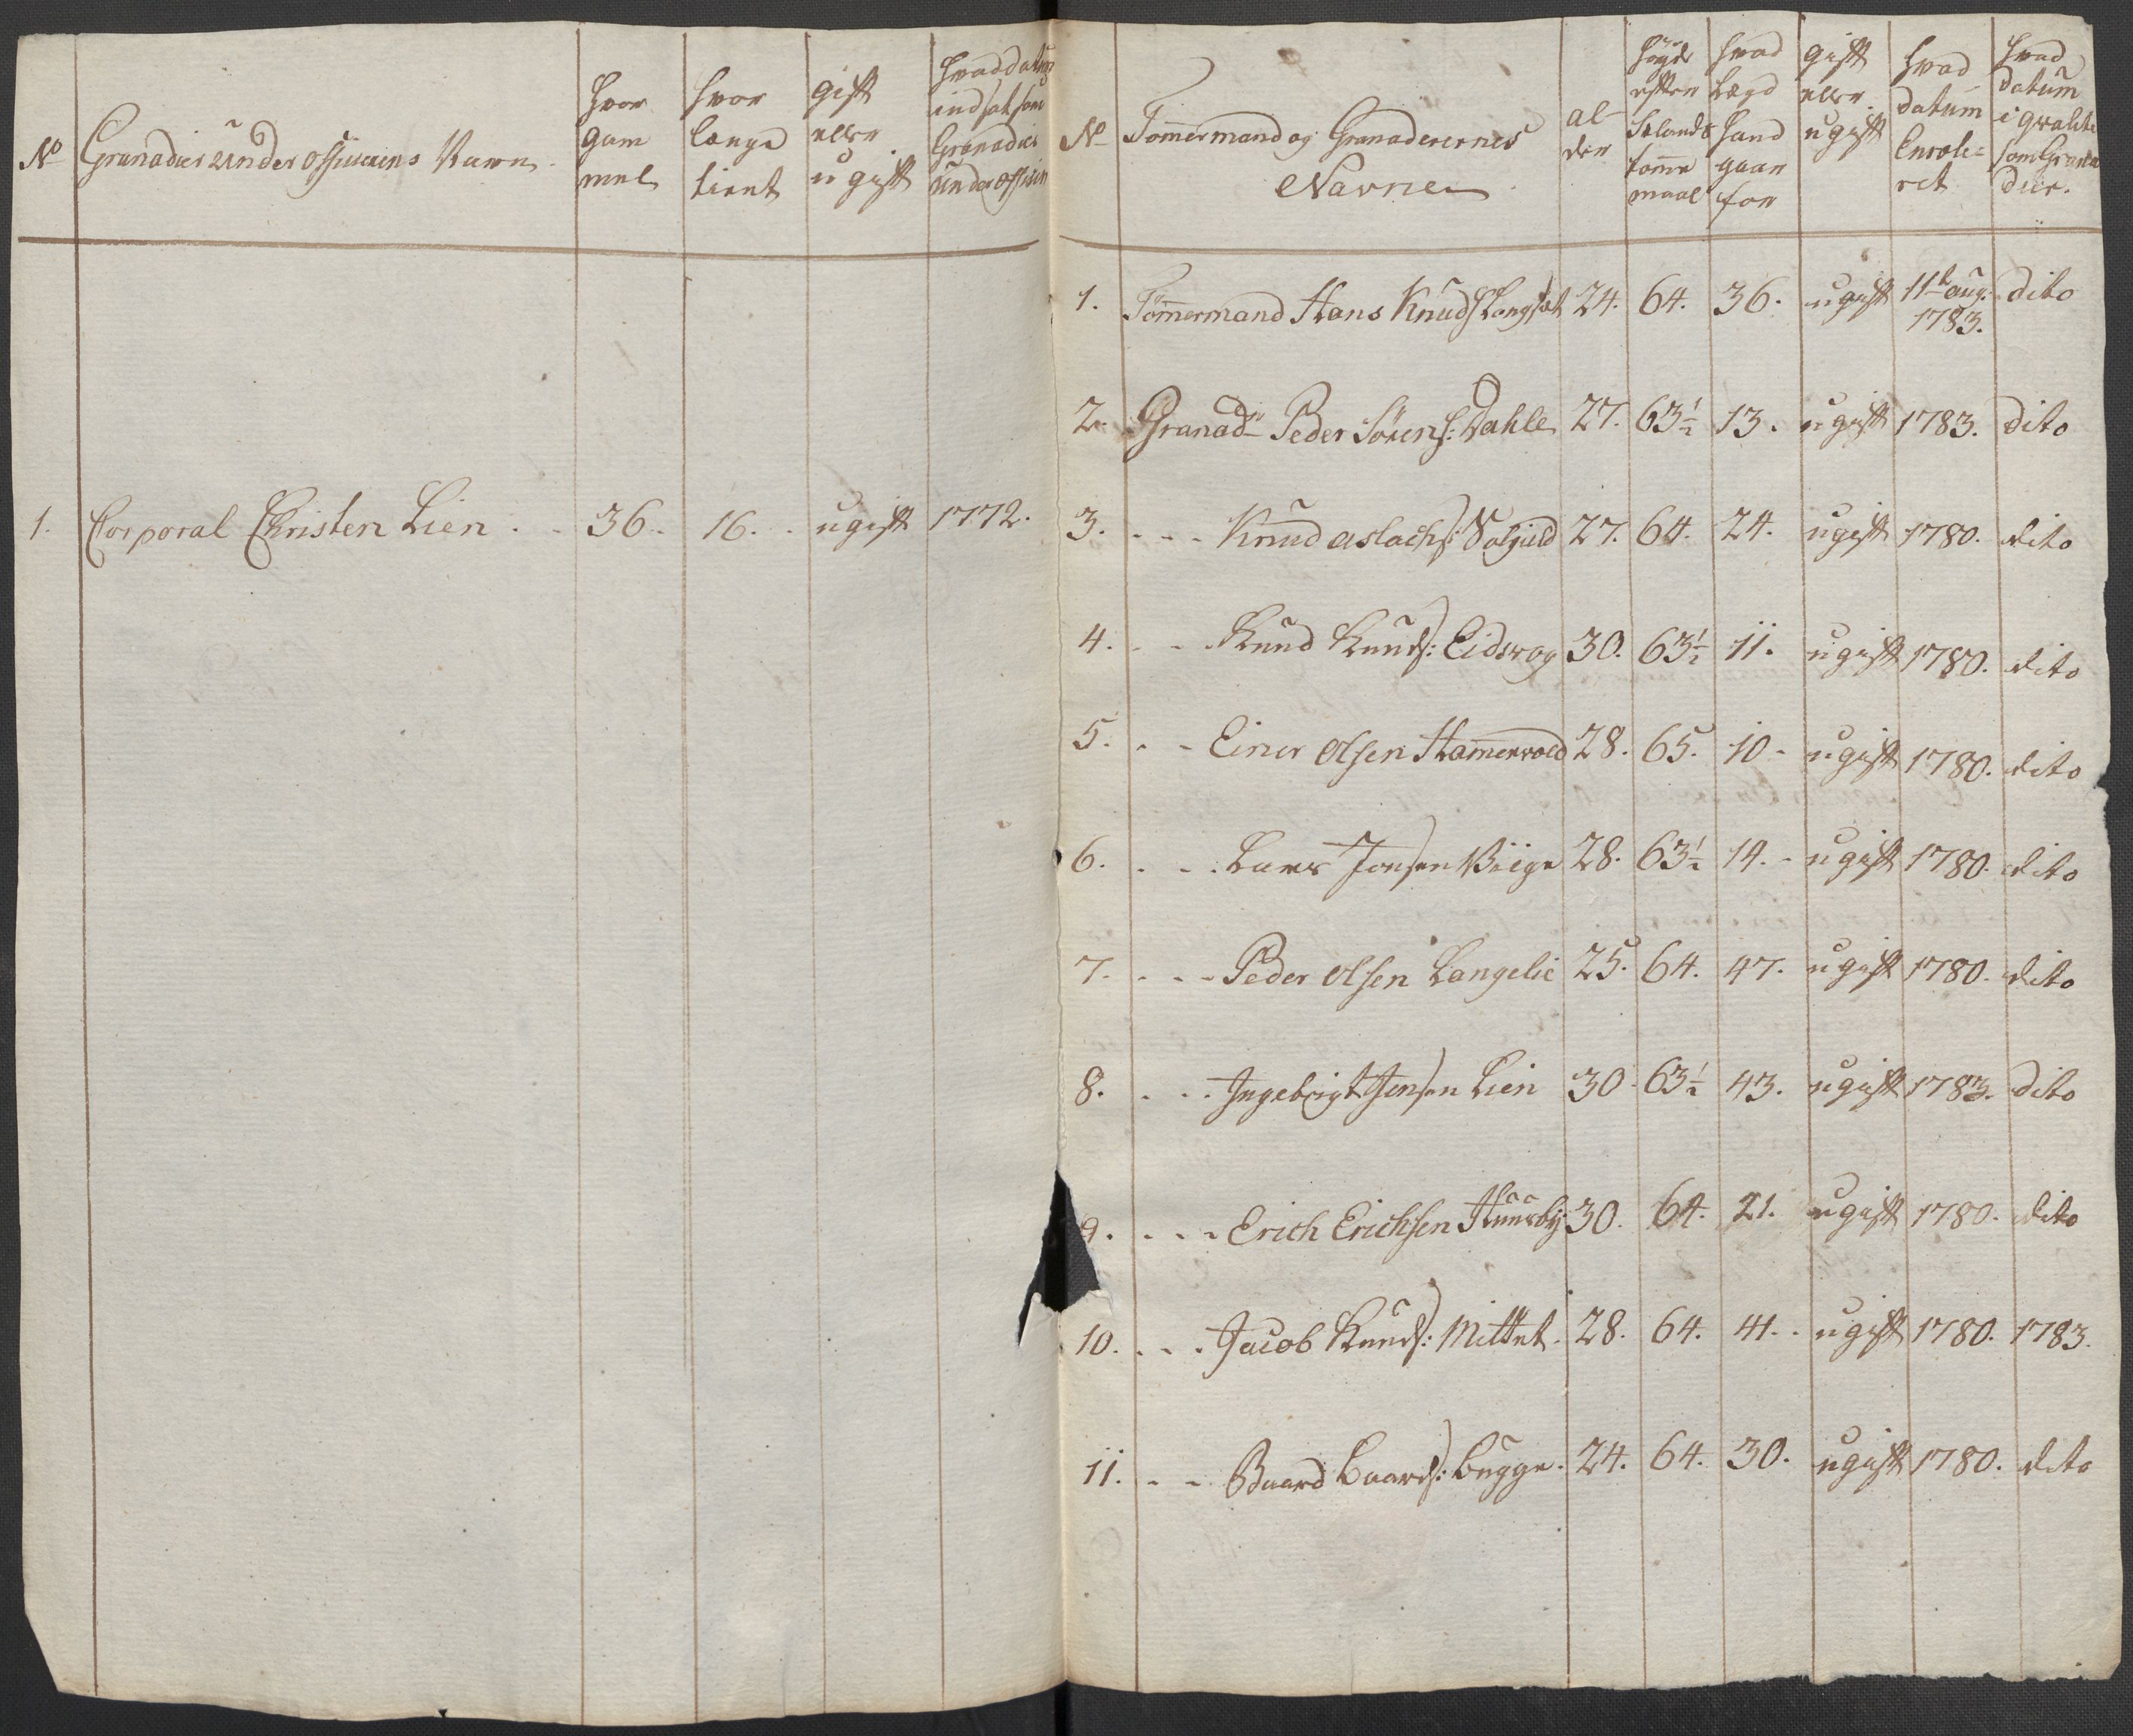 No Granadier Under Officierens Navn
hvor gam mel
hvor længe tient
gift eller ugift
hvad datum indsat som Granadier Under Officir
1. Corporal Christen Lien . . 36. 16. . ugift 1772.
No Tømermand og Granaderernes Navne
al der
høyde efter Siælands tomme maal
hvad Lægd hand gaar for
gift eller ugift
hvad datum Enrole= ret
hvad datum i qvalite som Grana dier.
1. Tømermand Hans Knuds Langsæt 24. 64. 36. ugift 11te aug: 1783. dito
2. Granadr Peder Sørens: Dahle 27. 63½ 13. ugift 1783. dito
3. - - - Knud aslachs: 27. 64. 24. ugift 1780. dito
4. - - Knud Knuds: Eidsvog 30. 63½ 11. ugift 1780. dito
5. - - Einer Olsen Hamervold 28. 65. 10 - ugift 1780. dito
6. - - . Lars Jonsen 28. 63½ 14. - ugift 1780. dito
7. - - - Peder Olsen Langelie 25. 64. 47. ugift 1780. dito
8. - - . Ingebrigt Jensen Lien 30. 63½ 43. ugift 1783. dito
9. - - - Erich Erichsen Huusby 30. 64. 21. ugift 1780. dito
10. - - . Jacob Knuds: Mittet. 28. 64. 41. . ugift 1780. 1783.
11. - - Baard Baards: Bugge. 24. 64. 30. ugift 1780. dito